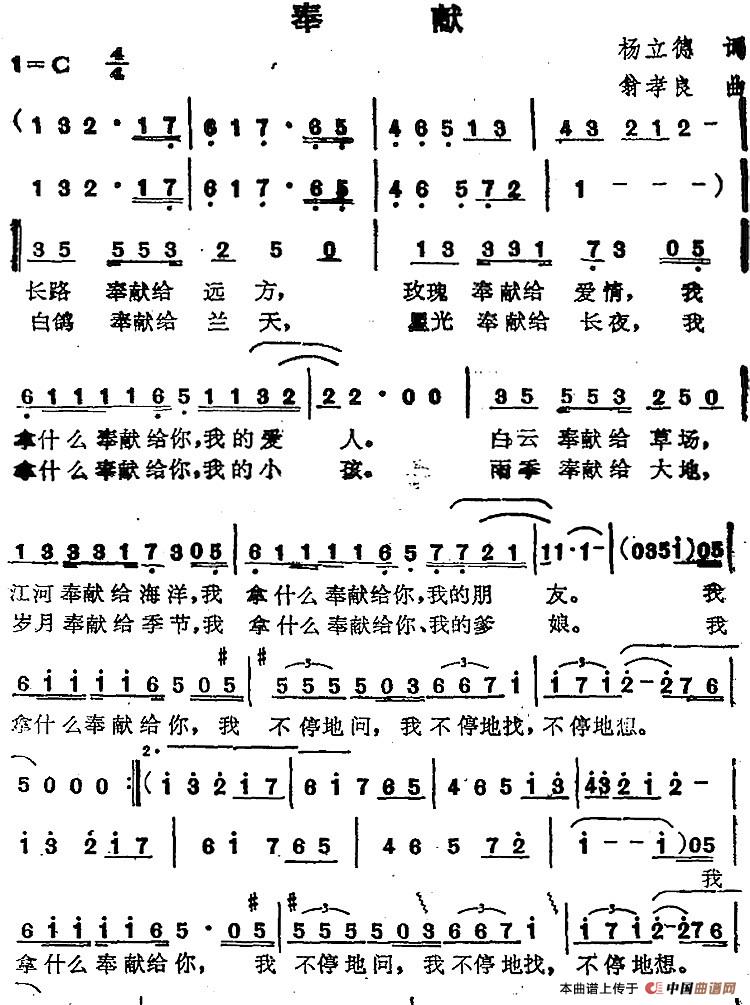 奉 献
1=C 4/4
杨立德 词
翁孝良 曲
(1 3 2· 1 7 6 1 7· 6 5 4 6 5 1 3 4 3 2 1 2 -
1 3 2· 1 7 6 1 7· 6 5 4 6 5 7 2 1 - - -)
3 5 5 5 3 2 5 0 1 3 3 3 1 7 3 0 5
长路 奉献给 远 方, 玫瑰 奉献给 爱情, 我
白鸽 奉献给 兰 天, 星光 奉献给 长夜, 我
6 1 1 1 1 6 5 1 1 3 2 2 2· 0 0 3 5 5 5 3 2 5 0
拿什么奉献给你,我的爱 人。 白云 奉献给 草场,
拿什么奉献给你,我的小 孩。 雨季 奉献给 大地,
1 3 3 3 1 7 3 0 5 6 1 1 1 1 6 5 7 7 2 1 1 1· 1 - (0 3 5 1) 0 5
江河奉献给海洋,我 拿什么奉献给你,我的朋 友。 我
岁月奉献给季节,我 拿什么奉献给你、我的爹 娘。 我
6 1 1 1 1 6 5 0 #5 #5 5 5 5 0 3 6 6 7 1 1 7 1 2 - 2 7 6
拿什么奉献给你, 我 不停地问, 我不停地找,不停地想。
5 0 0 0 :‖ 2. (1 3 2 1 7 6 1 7 6 5 4 6 5 1 3 4 3 2 1 2 -
1 3 2 1 7 6 1 7 6 5 4 6 5 7 2 1 - - 1) 0 5
我
6 1 1 1 1 6 5· 0 #5 #5 5 5 5 0 3 6 6 7 1 1 7 1 2 - 2 7 6
拿什么奉献给你, 我 不停地问, 我不停地找, 不停地想。
本曲谱上传于 中国曲谱网